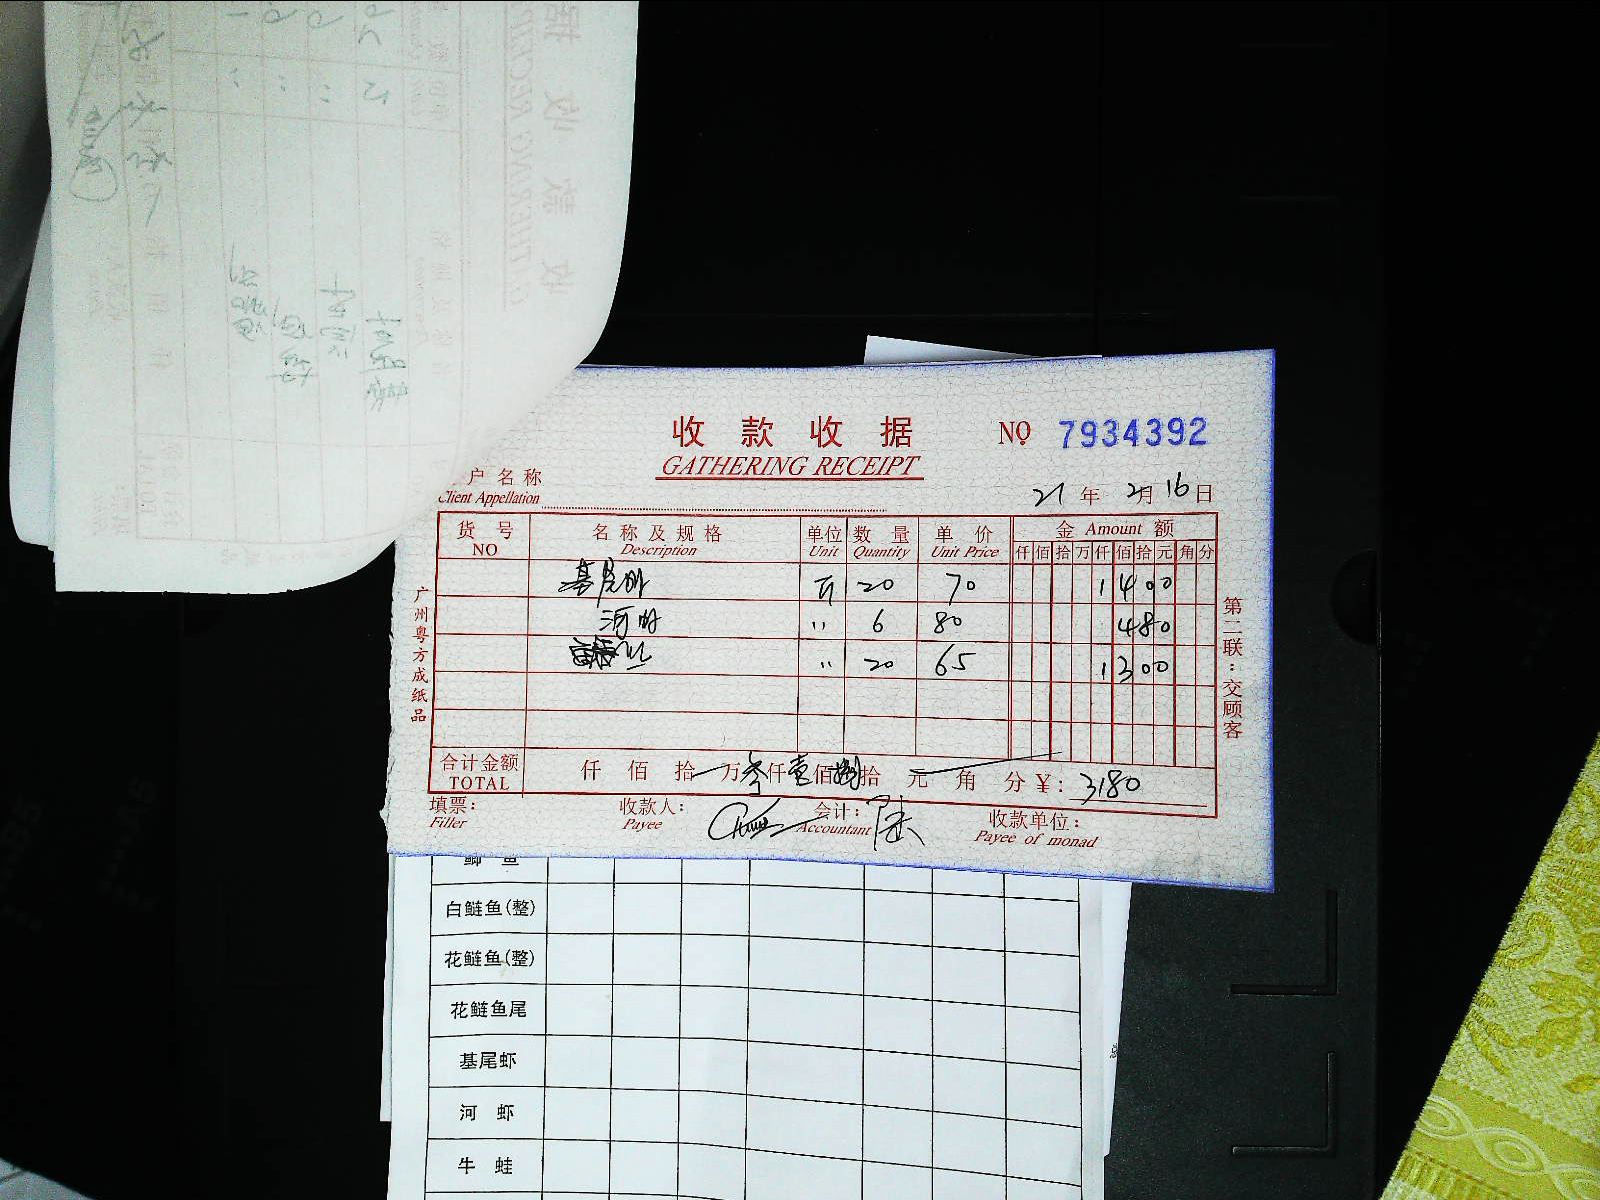 收款收据 NO 7934392
GATHERING RECEIPT
户名称
Client Appellation
21年2月16日
货号 名称及规格 单位 数量 单价 金 Amount 额
NO Description Unit Quantity Unit Price 仟佰拾万仟佰拾元角分
基尾虾 斤 20 70 1400
河虾 〃 6 80 480
〃 20 65 1300
合计金额 仟佰拾万叁仟壹佰捌拾元角分¥: 3180
TOTAL
填票: 收款人: 会计: 陆 收款单位:
Filler Payee Accountant Payee of monad
广州粤方成纸品
第二联:交顾客
鲫鱼
白鲢鱼(整)
花鲢鱼(整)
花鲢鱼尾
基尾虾
河虾
牛蛙